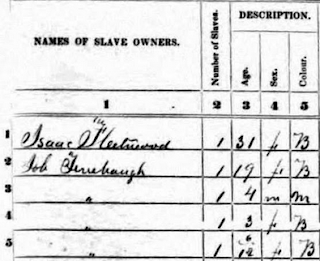 NAMES OF SLAVE OWNERS. Number of Slaves. DESCRIPTION.
Age. Sex. Colour.
1 2 3 4 5
1 Isaac Fleetwood 1 31 f B
2 Job 1 19 f B
3 " 1 4 m M
4 " 1 3 f B
5 " 1 f B